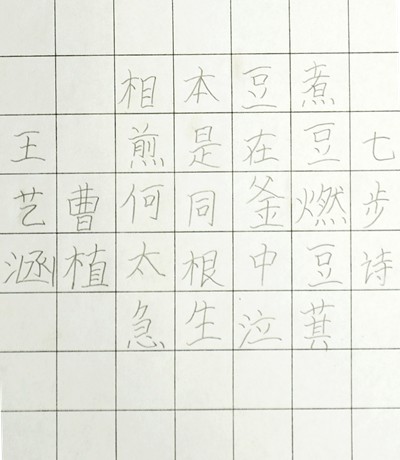 七步诗
煮豆燃豆萁
豆在釜中泣
本是同根生
相煎何太急
曹植
王艺涵